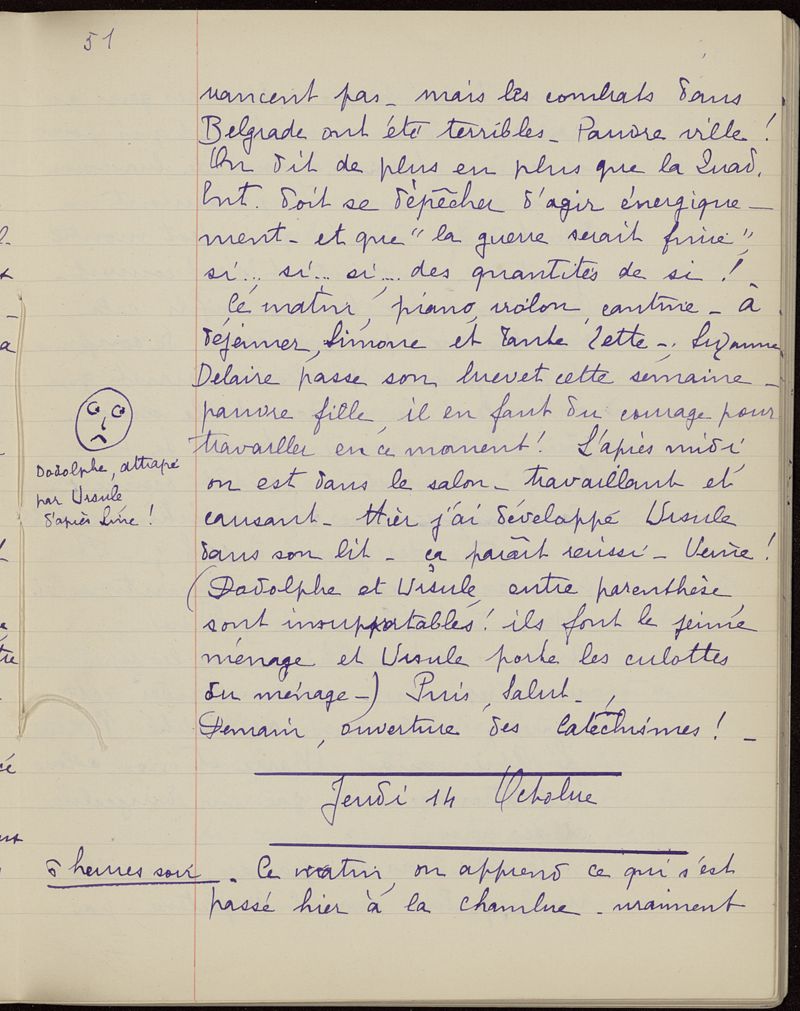 51
vancent pas - mais les combats dans
Belgrade ont été terribles - Pauvre ville !
On dit de plus en plus que la Quad.
Ent. doit se dépêcher d'agir énergique -
ment - et que " la guerre serait finie ",
si... si... si... des quantités de si !
Ce matin, piano, violon, cantine - À
déjeuner, Simone et tante Zette - Suzanne
Delaire passe son brevet cette semaine -
pauvre fille, il en faut du courage pour
travailler en ce moment ! L'après midi
on est dans le salon - travaillant et
causant - Hier j'ai développé Ursule
dans son lit - ça paraît reussi - Veine !
(Dodolphe et Ursule, entre parenthèse
sont insupportables ! ils font le jeune
ménage et Ursule porte les culottes
du ménage -) Puis, Salut -
Demain, ouverture des Catéchismes ! -
Dodolphe, attrapé
par Ursule
d'après Line !
Jeudi 14 Octobre
6 heures soir. Ce matin, on apprend ce qui s'est
passé hier à la Chambre - vraiment